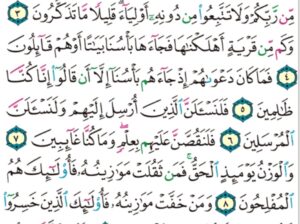 مِّن رَّبِّكُمْ وَلَا تَتَّبِعُوا۟ مِن دُونِهِۦٓ أَوْلِيَآءَ ۗ قَلِيلًا مَّا تَذَكَّرُونَ ٣
وَكَم مِّن قَرْيَةٍ أَهْلَكْنَٰهَا فَجَآءَهَا بَأْسُنَا بَيَٰتًا أَوْ هُمْ قَآئِلُونَ
٤ فَمَا كَانَ دَعْوَىٰهُمْ إِذْ جَآءَهُم بَأْسُنَآ إِلَّآ أَن قَالُوٓا۟ إِنَّا كُنَّا
ظَٰلِمِينَ ٥ فَلَنَسْـَٔلَنَّ ٱلَّذِينَ أُرْسِلَ إِلَيْهِمْ وَلَنَسْـَٔلَنَّ
ٱلْمُرْسَلِينَ ٦ فَلَنَقُصَّنَّ عَلَيْهِم بِعِلْمٍ ۖ وَمَا كُنَّا غَآئِبِينَ ٧
وَٱلْوَزْنُ يَوْمَئِذٍ ٱلْحَقُّ ۚ فَمَن ثَقُلَتْ مَوَٰزِينُهُۥ فَأُو۟لَٰٓئِكَ هُمُ
ٱلْمُفْلِحُونَ ٨ وَمَنْ خَفَّتْ مَوَٰزِينُهُۥ فَأُو۟لَٰٓئِكَ ٱلَّذِينَ خَسِرُوٓا۟